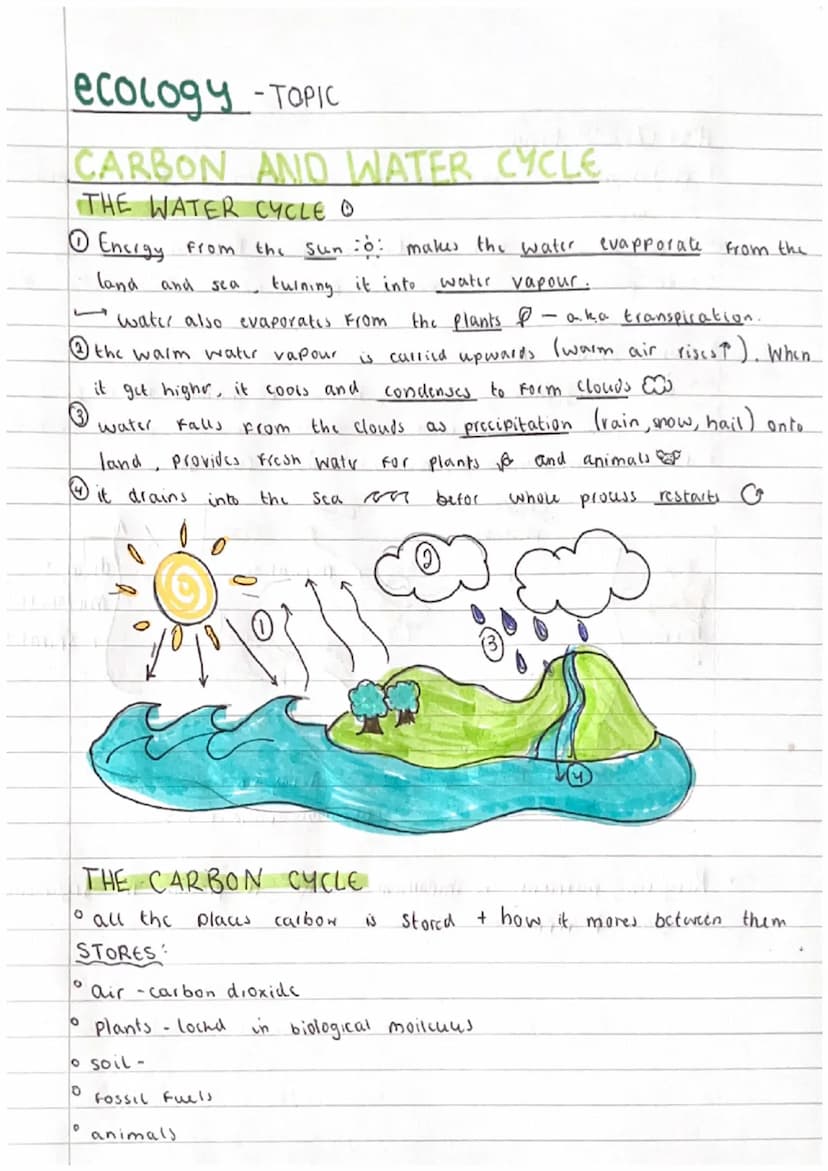 ecology - TOPIC
CARBON AND WATER CYCLE
THE WATER CYCLE
① Energy from the sun makes the water evapporate from the
land and sea, turning it into water vapour.
↳ water also evaporates from the plants - a.k.a transpiration.
② the warm water vapour is carried upwards (warm air rises↑). When
it get higher, it cools and condenses to form clouds
③ water falls from the clouds as precipitation (rain, snow, hail) onto
land, provides fresh water for plants and animals
④ it drains into the sea befor whole process restarts
①
②
③
④
THE CARBON CYCLE
° all the places carbon is stored + how it moves between them
STORES:
° air - carbon dioxide
° plants - locked in biological molecules
° soil -
° fossil fuels
° animals